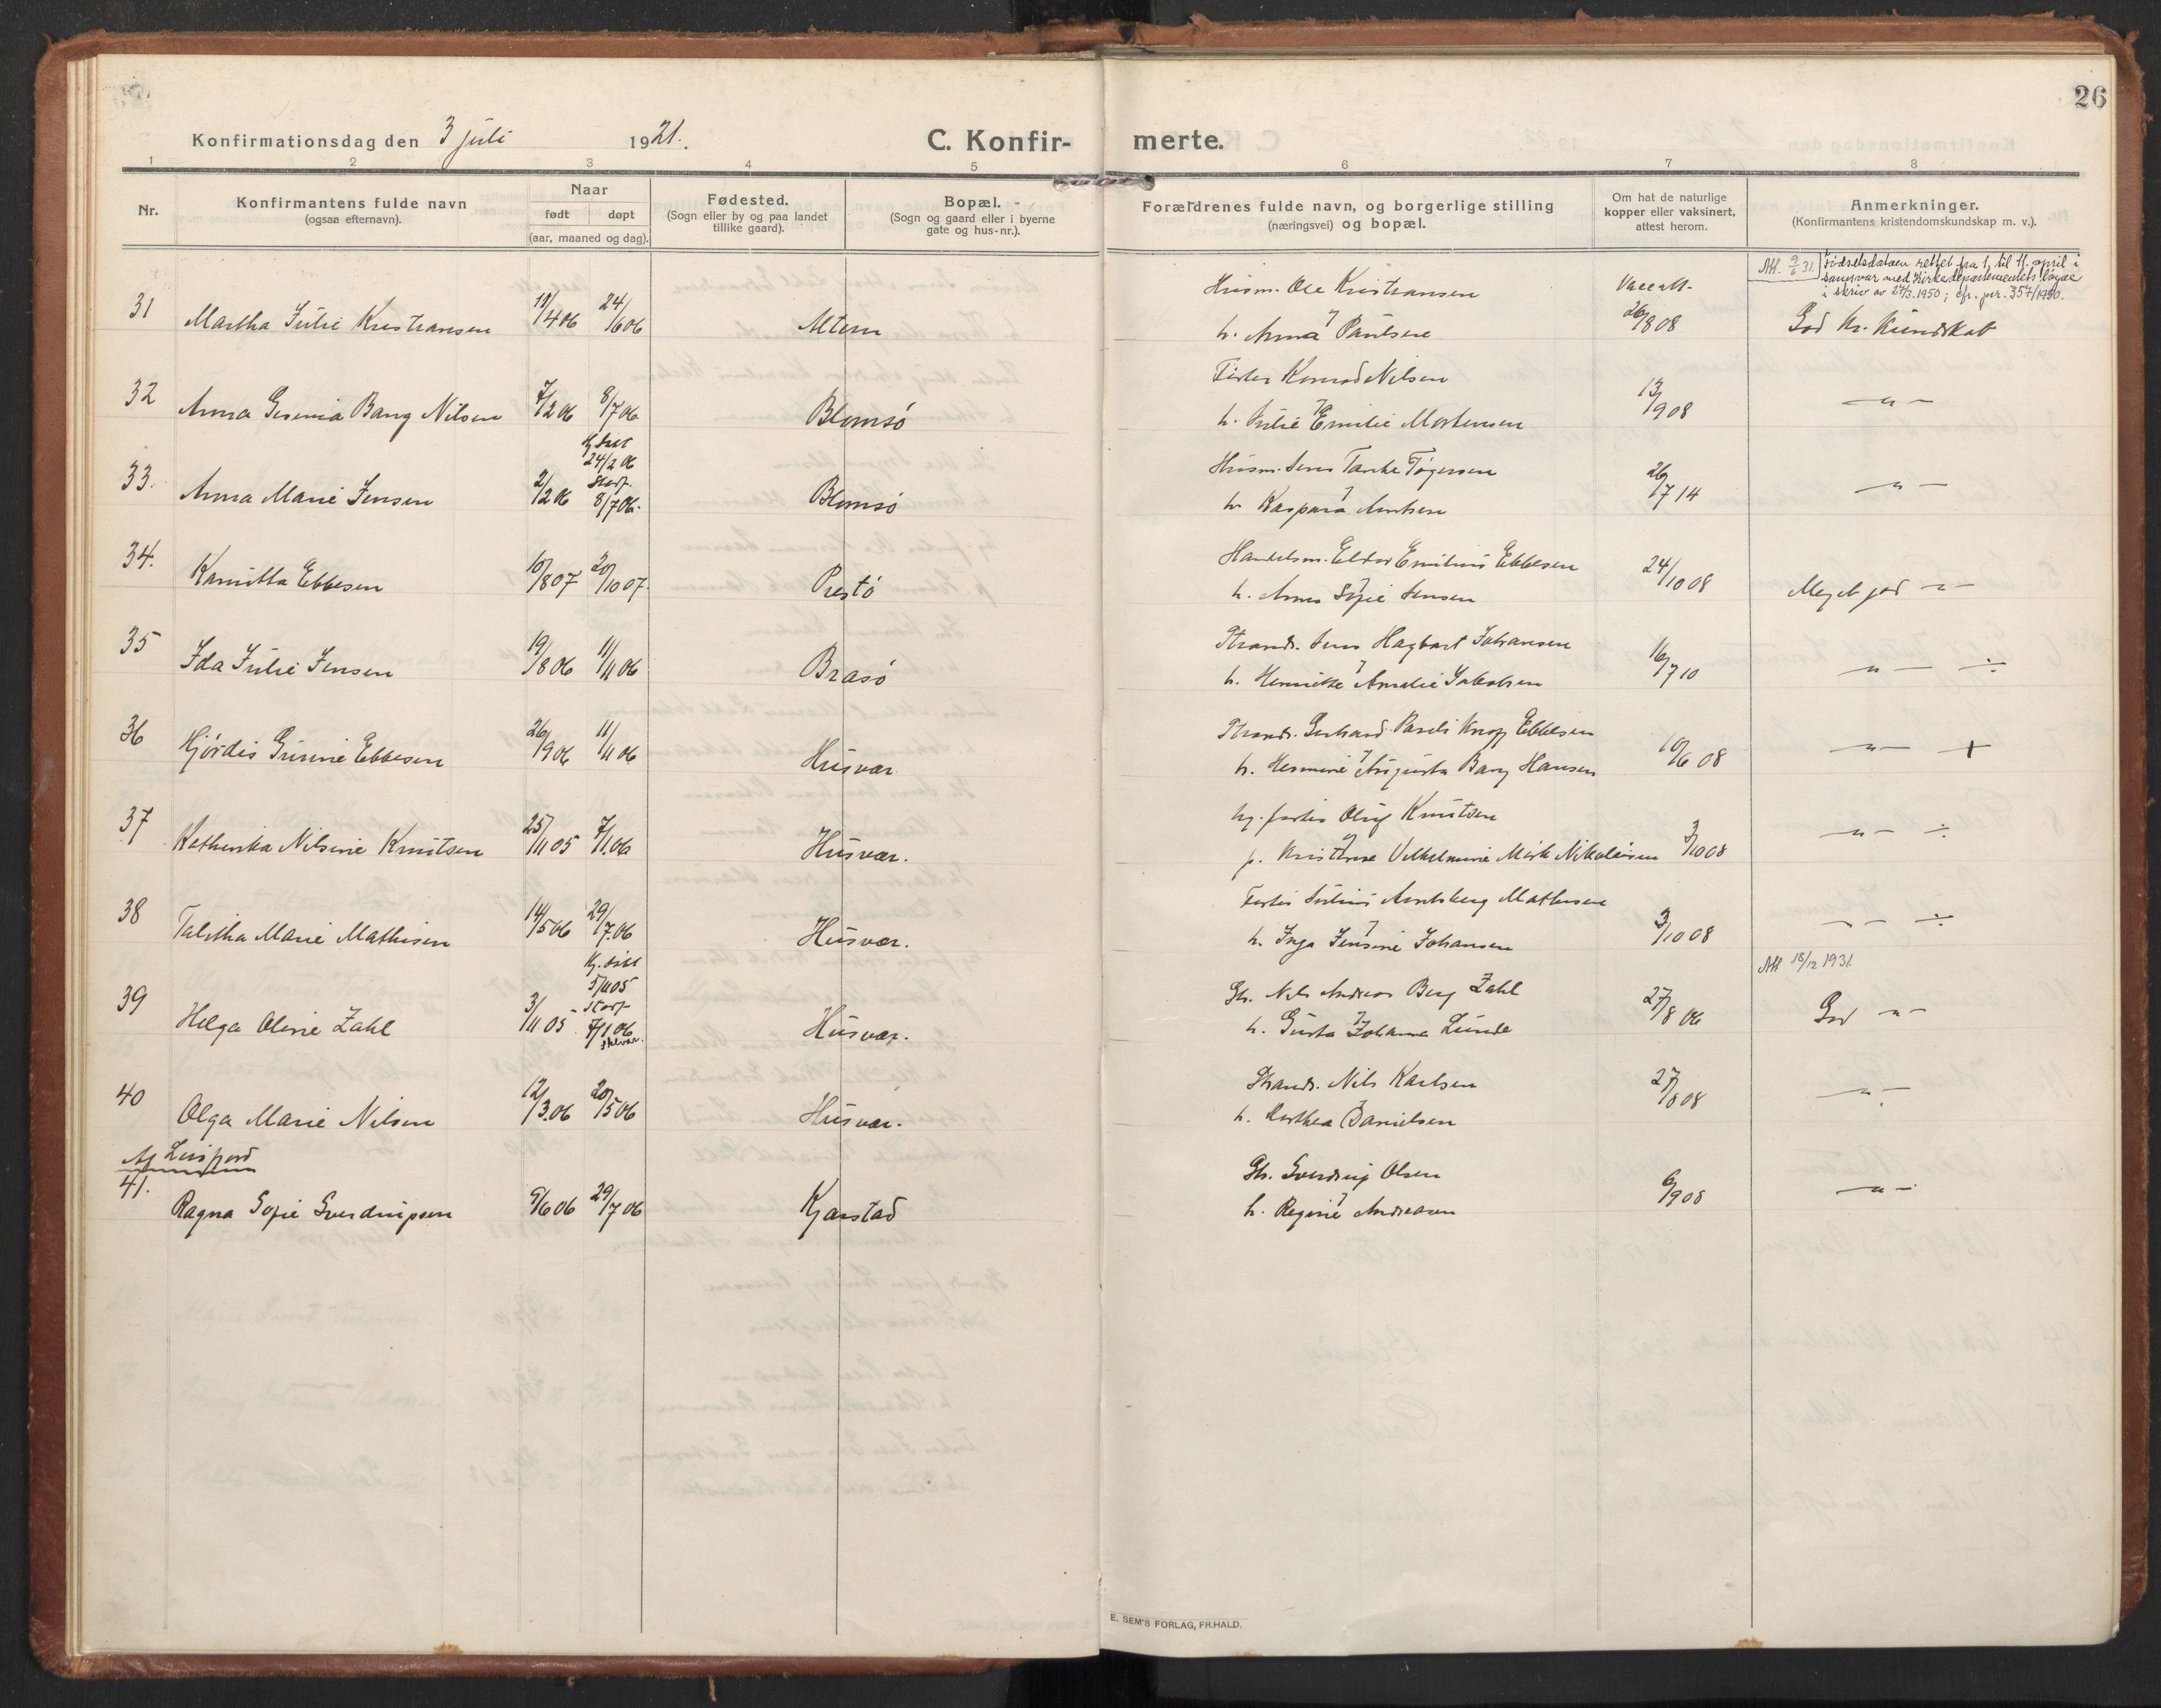 26
Konfirmationsdag den 3 juli 1921.
C. Konfir-
merte.
1 2 3 4 5 6 7 8
Nr.
Konfirmantens fulde navn
(ogsaa efternavn).
Naar
født døpt
(aar, maaned og dag).
Fødested.
(Sogn eller by og paa landet
tillike gaard).
Bopæl.
(Sogn og gaard eller i byerne
gate og hus-nr.).
Forældrenes fulde navn, og borgerlige stilling
(næringsvei) og bopæl.
Om hat de naturlige
kopper eller vaksinert,
attest herom.
Anmerkninger.
(Konfirmantens kristendomskundskap m. v.).
Att. 9/6 31. Fødselsdataen rettet fra 1. til 11. april i
samsvar med Kirkedepartementets
i skriv av 27/3.1950; cfr. jnr. 357/1950.
31 Martha Julie Kristiansen 11/4 06 24/6 06 Altern
Husm. Ole Kristiansen
h. Anna Paulsen
26/8 08 God Kr. Kundskab
32 Anna Gesenia Bang Nilsen 7/2 06 8/7 06 Blomsö
Fisker Konrad Nilsen
h. Julie Emilie Mortensen
13/9 08 -"-
33. Anna Marie Jensen 2/2 06 Hj. døbt 24/2 06 Stadf. 8/7 06. Blomsö
Husm. Jens Tanke Tøgersen
h. Kaspara Arntsen
26/7 14 -"-
34. Kamitta Ebbesen 10/8 07 20/10 07. Prestö
Handelsm. Eldor Emilius Ebbesen
h. Anna Sofie Jensen
24/10 08 Meget god -"-
35 Ida Julie Jensen 19/8 06 11/11 06 Brasö
Strands. Jens Hagbart Johansen
h. Henrikke Amalie Jakobsen
16/7 10 -"- ÷
36 Hjørdis Gunnie Ebbesen 26/9 06 11/11 06 Husvær
Strands. Gerhard Pareli Knop Ebbesen
h. Hermine Augusta Bang Hansen
10/6 08 -"- +
37 Kathinka Nilsine Knutsen 25/11 05 7/1.06 Husvær.
Ug. fisker Oluf Knutsen
p. Kristine Vilhelmine Mørk Nikolaisen
3/10 08 -"- ÷
38 Talitha Marie Mathisen 14/5 06 29/7.06 Husvær.
Fisker Julius Arntsberg Mathisen
h. Inga Jensine Johansen
3/10 08 -"- ÷
Att. 18/12 1931.
39 Helga Oline Zahl 3/11 05 Hj. døbt 5/11 05 Stadf. 7/1 06 Husvær.
Gb. Nils Andreas Berg Zahl
h. Gusta Johanna Lunde
27/8 06 God -"-
40 Olga Marie Nilsen 12/3.06 20/5 06 Husvær.
Strands. Nils Karlsen
h. Dorthea Danielsen
27/8 08 -"-
Af Leirfjord
41. Ragna Sofie Sverdrupsen 9/6 06 29/7 06 Kjærstad
Gb. Sverdrup Olsen
h. Regine Andreasen
6/9 08 -"-
E. SEM'S FORLAG, FR.HALD.